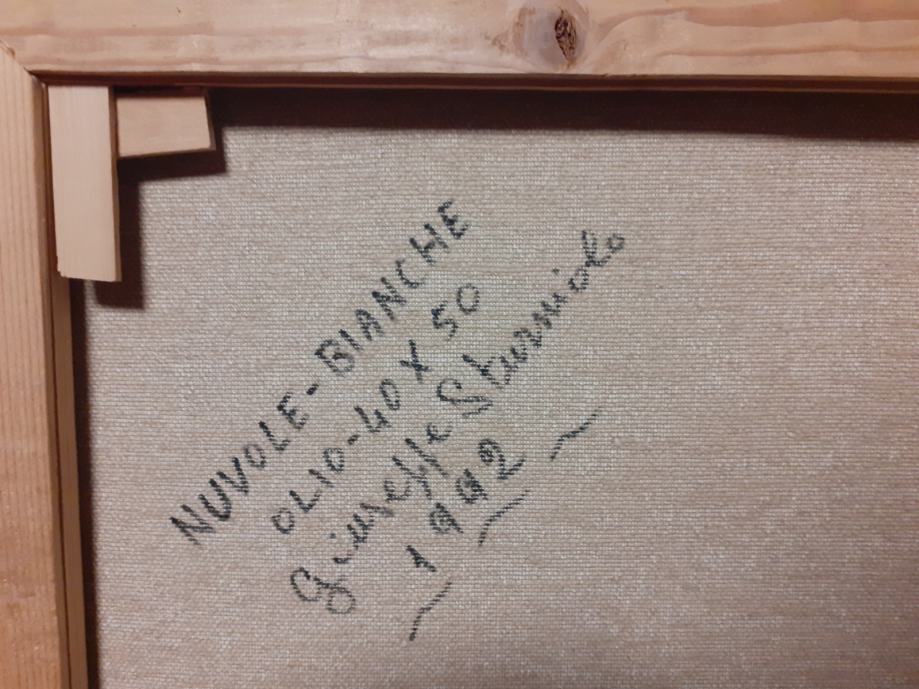 NUVOLE-BIANCHE
OLIO-40X50
Giuseppe Sturniolo
1992